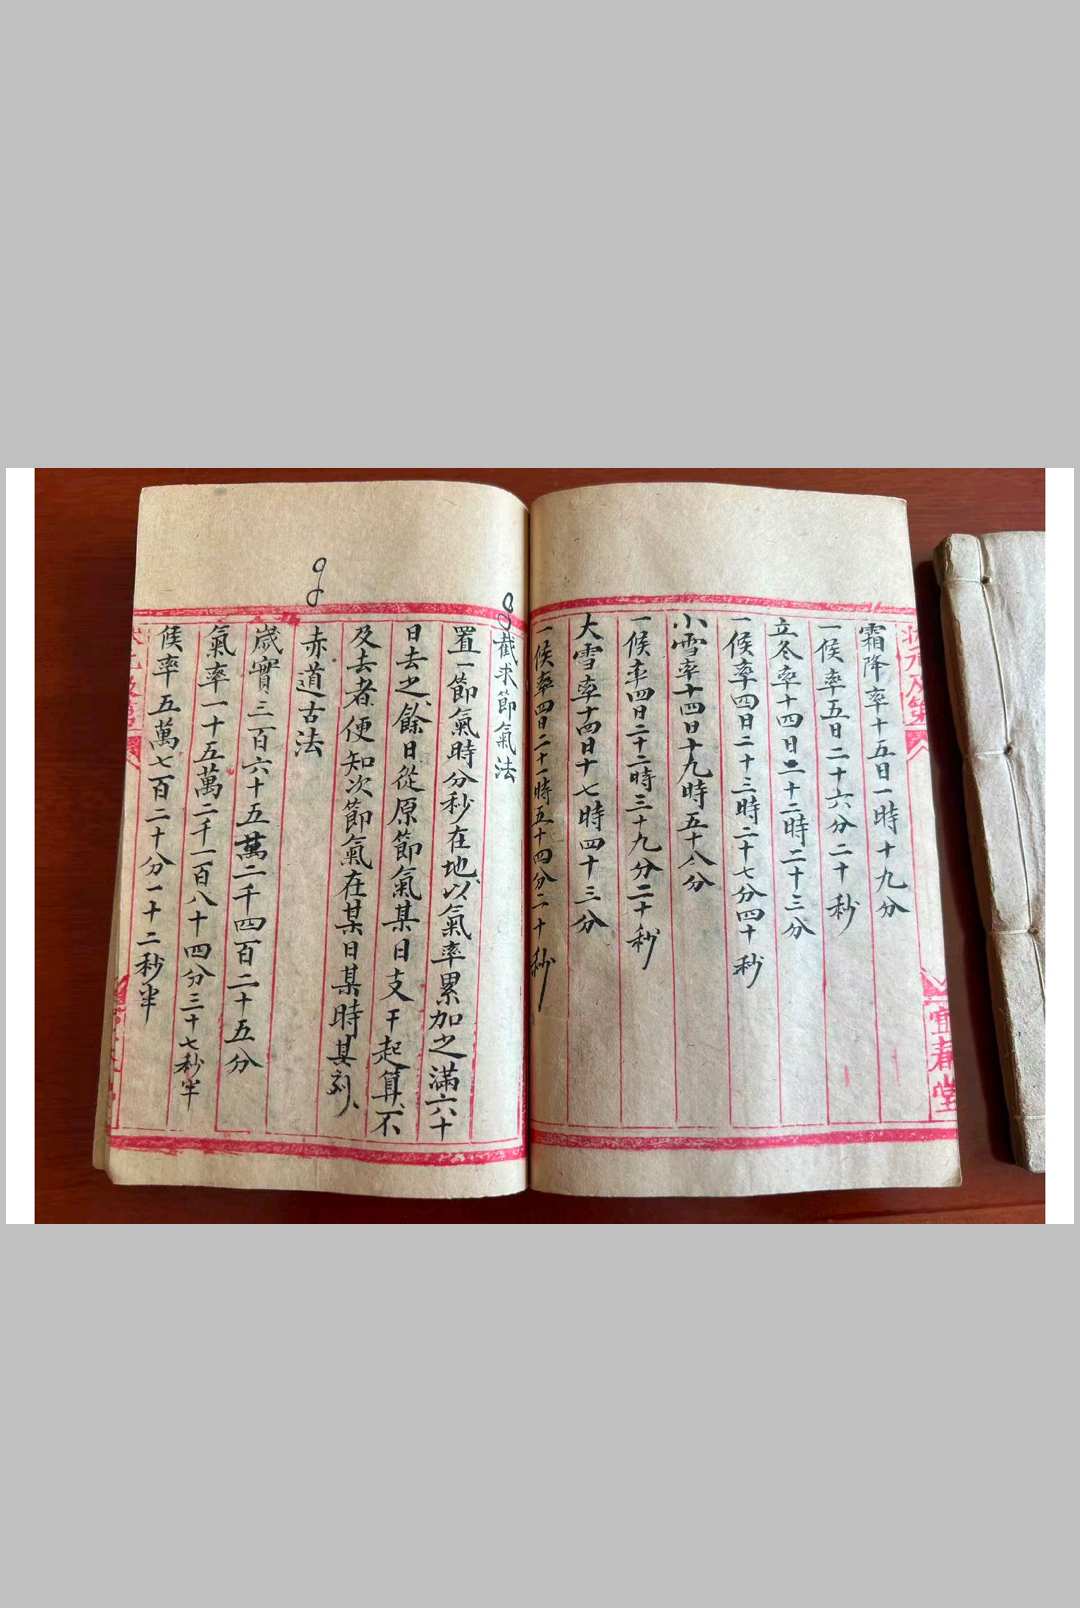 霜降率十五日一時十九分
一候率五日二十六分二十秒
立冬率十四日二十二時二十三分
一候率四日二十三時二十七分四十秒
小雪率十四日十九時五十八分
一候率四日二十二時三十九分二十秒
大雪率十四日十七時四十三分
一候率四日二十一時五十四分二十秒
截求節氣法
置一節氣時分秒在地以氣率累加之滿六十
日去之餘日從原節氣某日支干起算不
及去者便知次節氣在某日某時某刻
赤道古法
歲實三百六十五萬二千四百二十五分
氣率一十五萬二千一百八十四分三十七秒半
候率五萬七百二十分一十二秒半
宜春堂